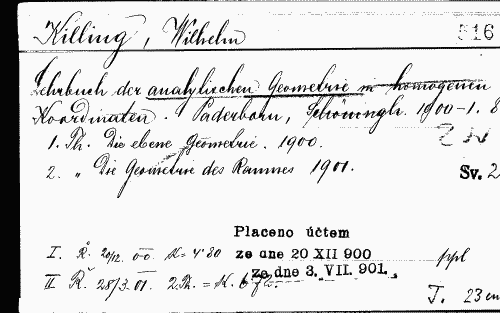 Killing, Wilhelm 516
Lehrbuch der analytischen Geometrie in homogenen
Koordinaten. Paderborn, Schöningh. 1900-1. 8
1. Th. Die ebene Geometrie. 1900.
2. " Die Geometrie des Raumes 1901. Sv. 2
Placeno účtem
I. Ř. 20/12. 00. K = 4·80 ze dne 20 XII 900 ppl
II Ř. 28/3. 01. 2. Th. = K. 6·72. ze dne 3. VII. 901.
T. 23 cm